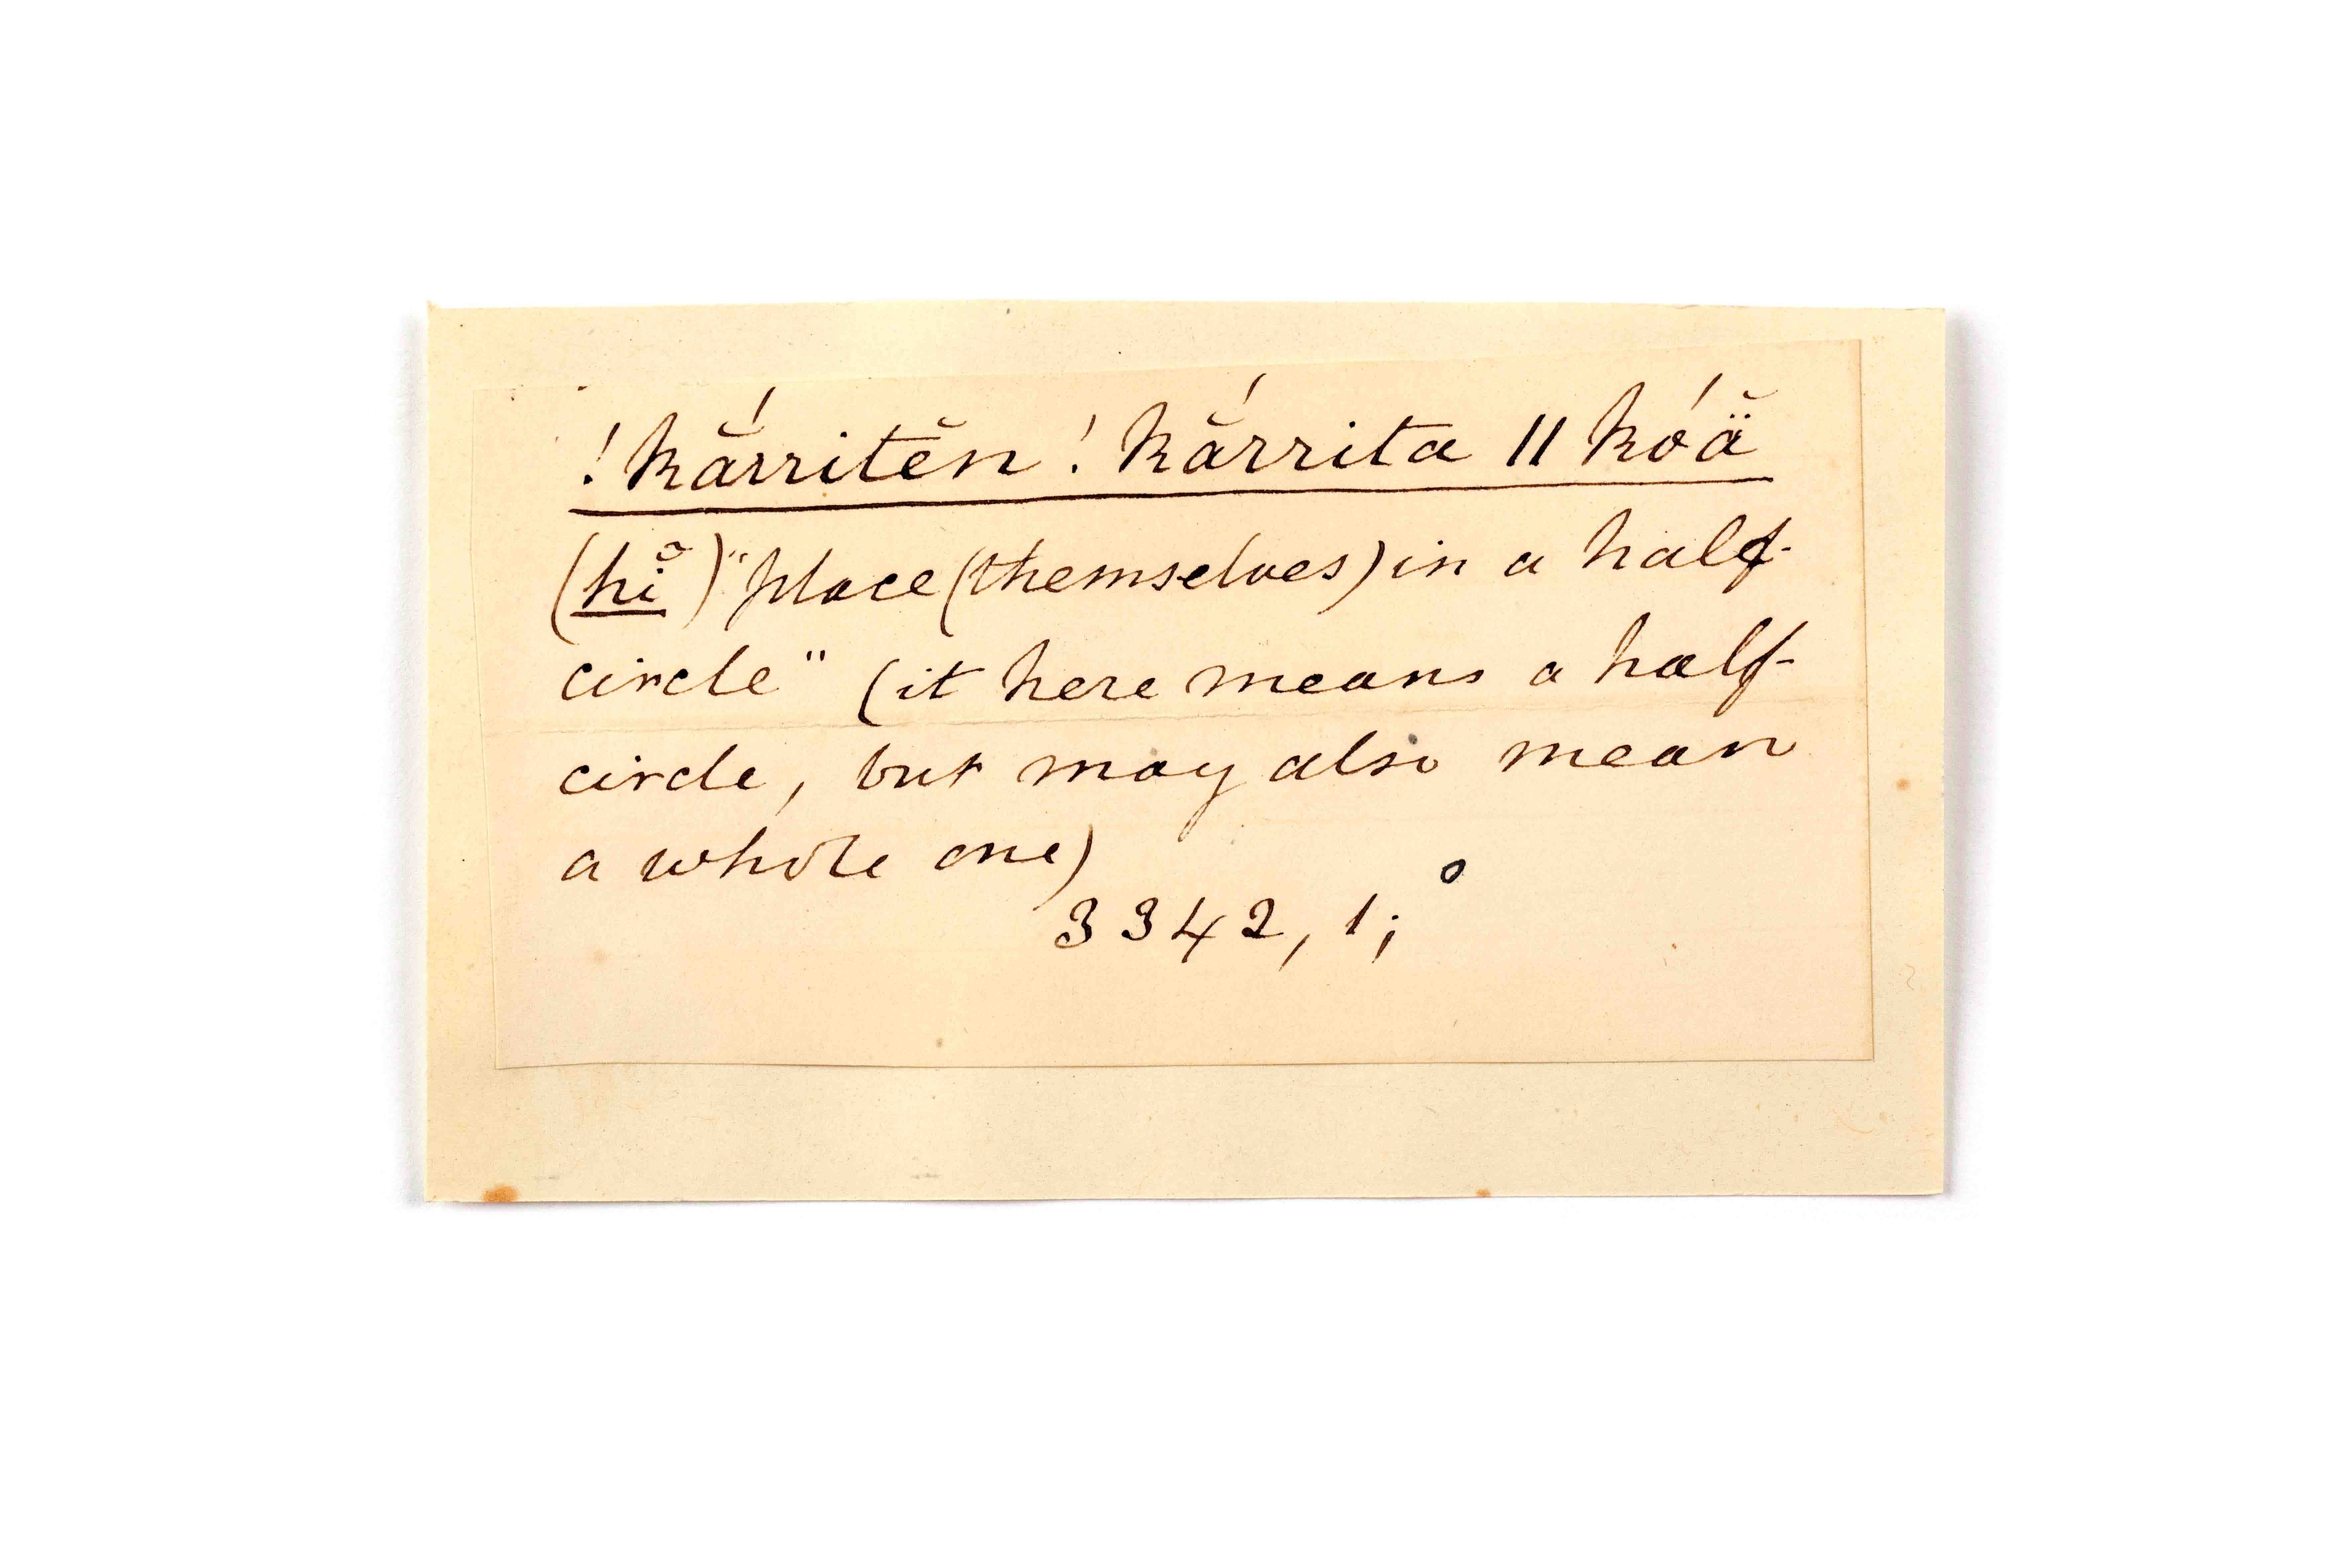 !kắrritĕn !kắrrita ǁkóä̆
(hĭ̃) "place (themselves) in a half-
circle" (it here means a half-
circle, but may also mean
a whole one)
3342, 1; o